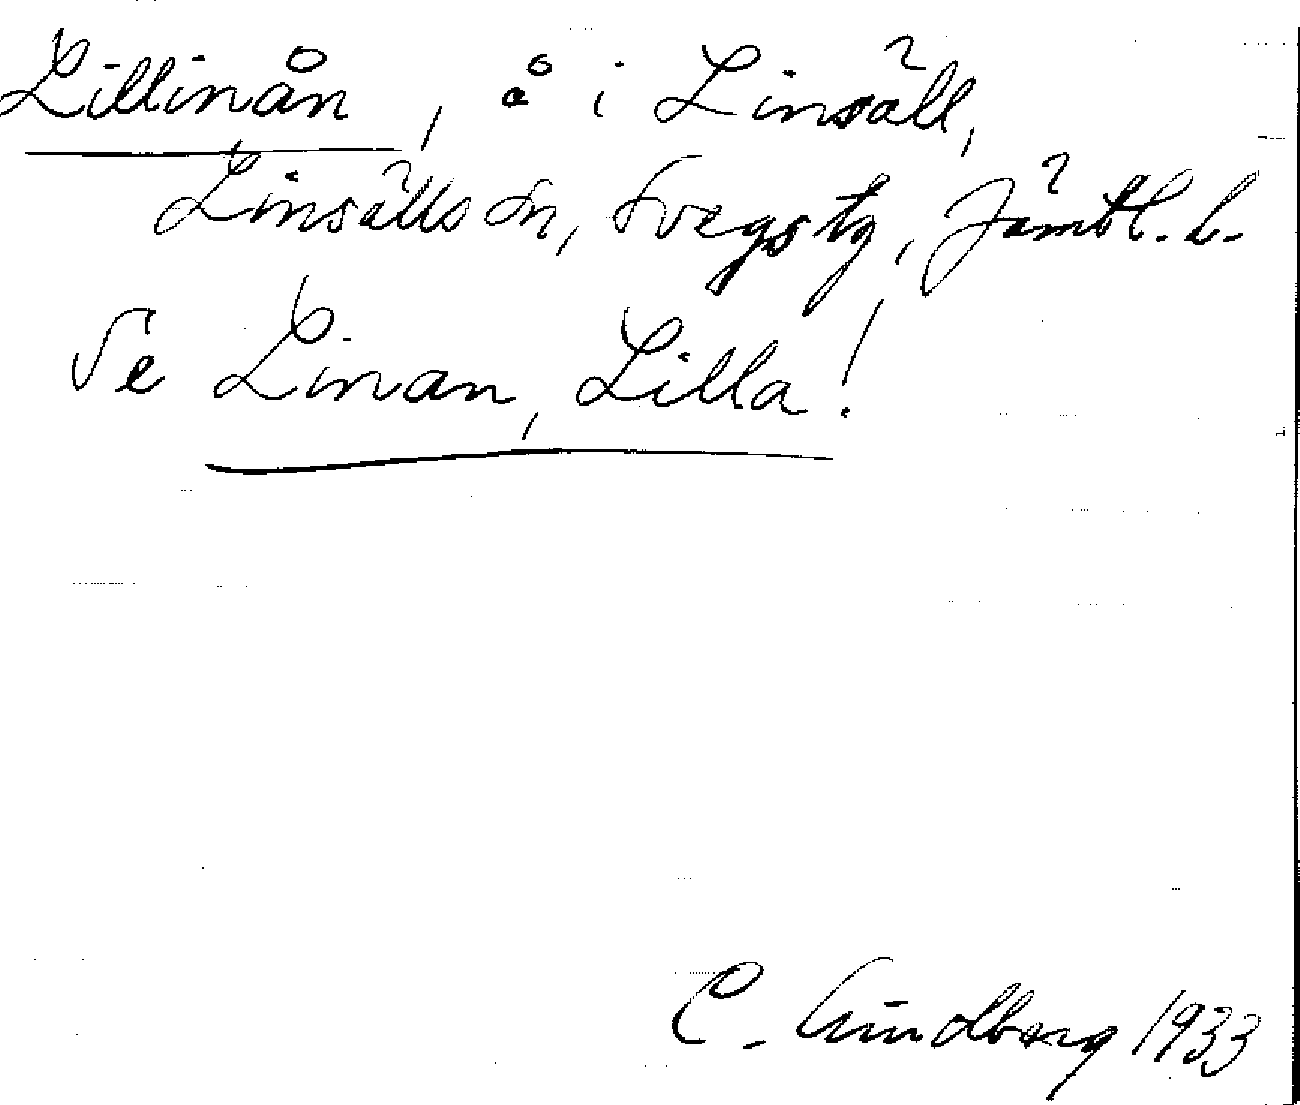 Lillinån, å i Linsäll,
Linsälls sn, Svegs tg, Jämtl. l.
Se Linan, Lilla!
C. Lundberg 1933